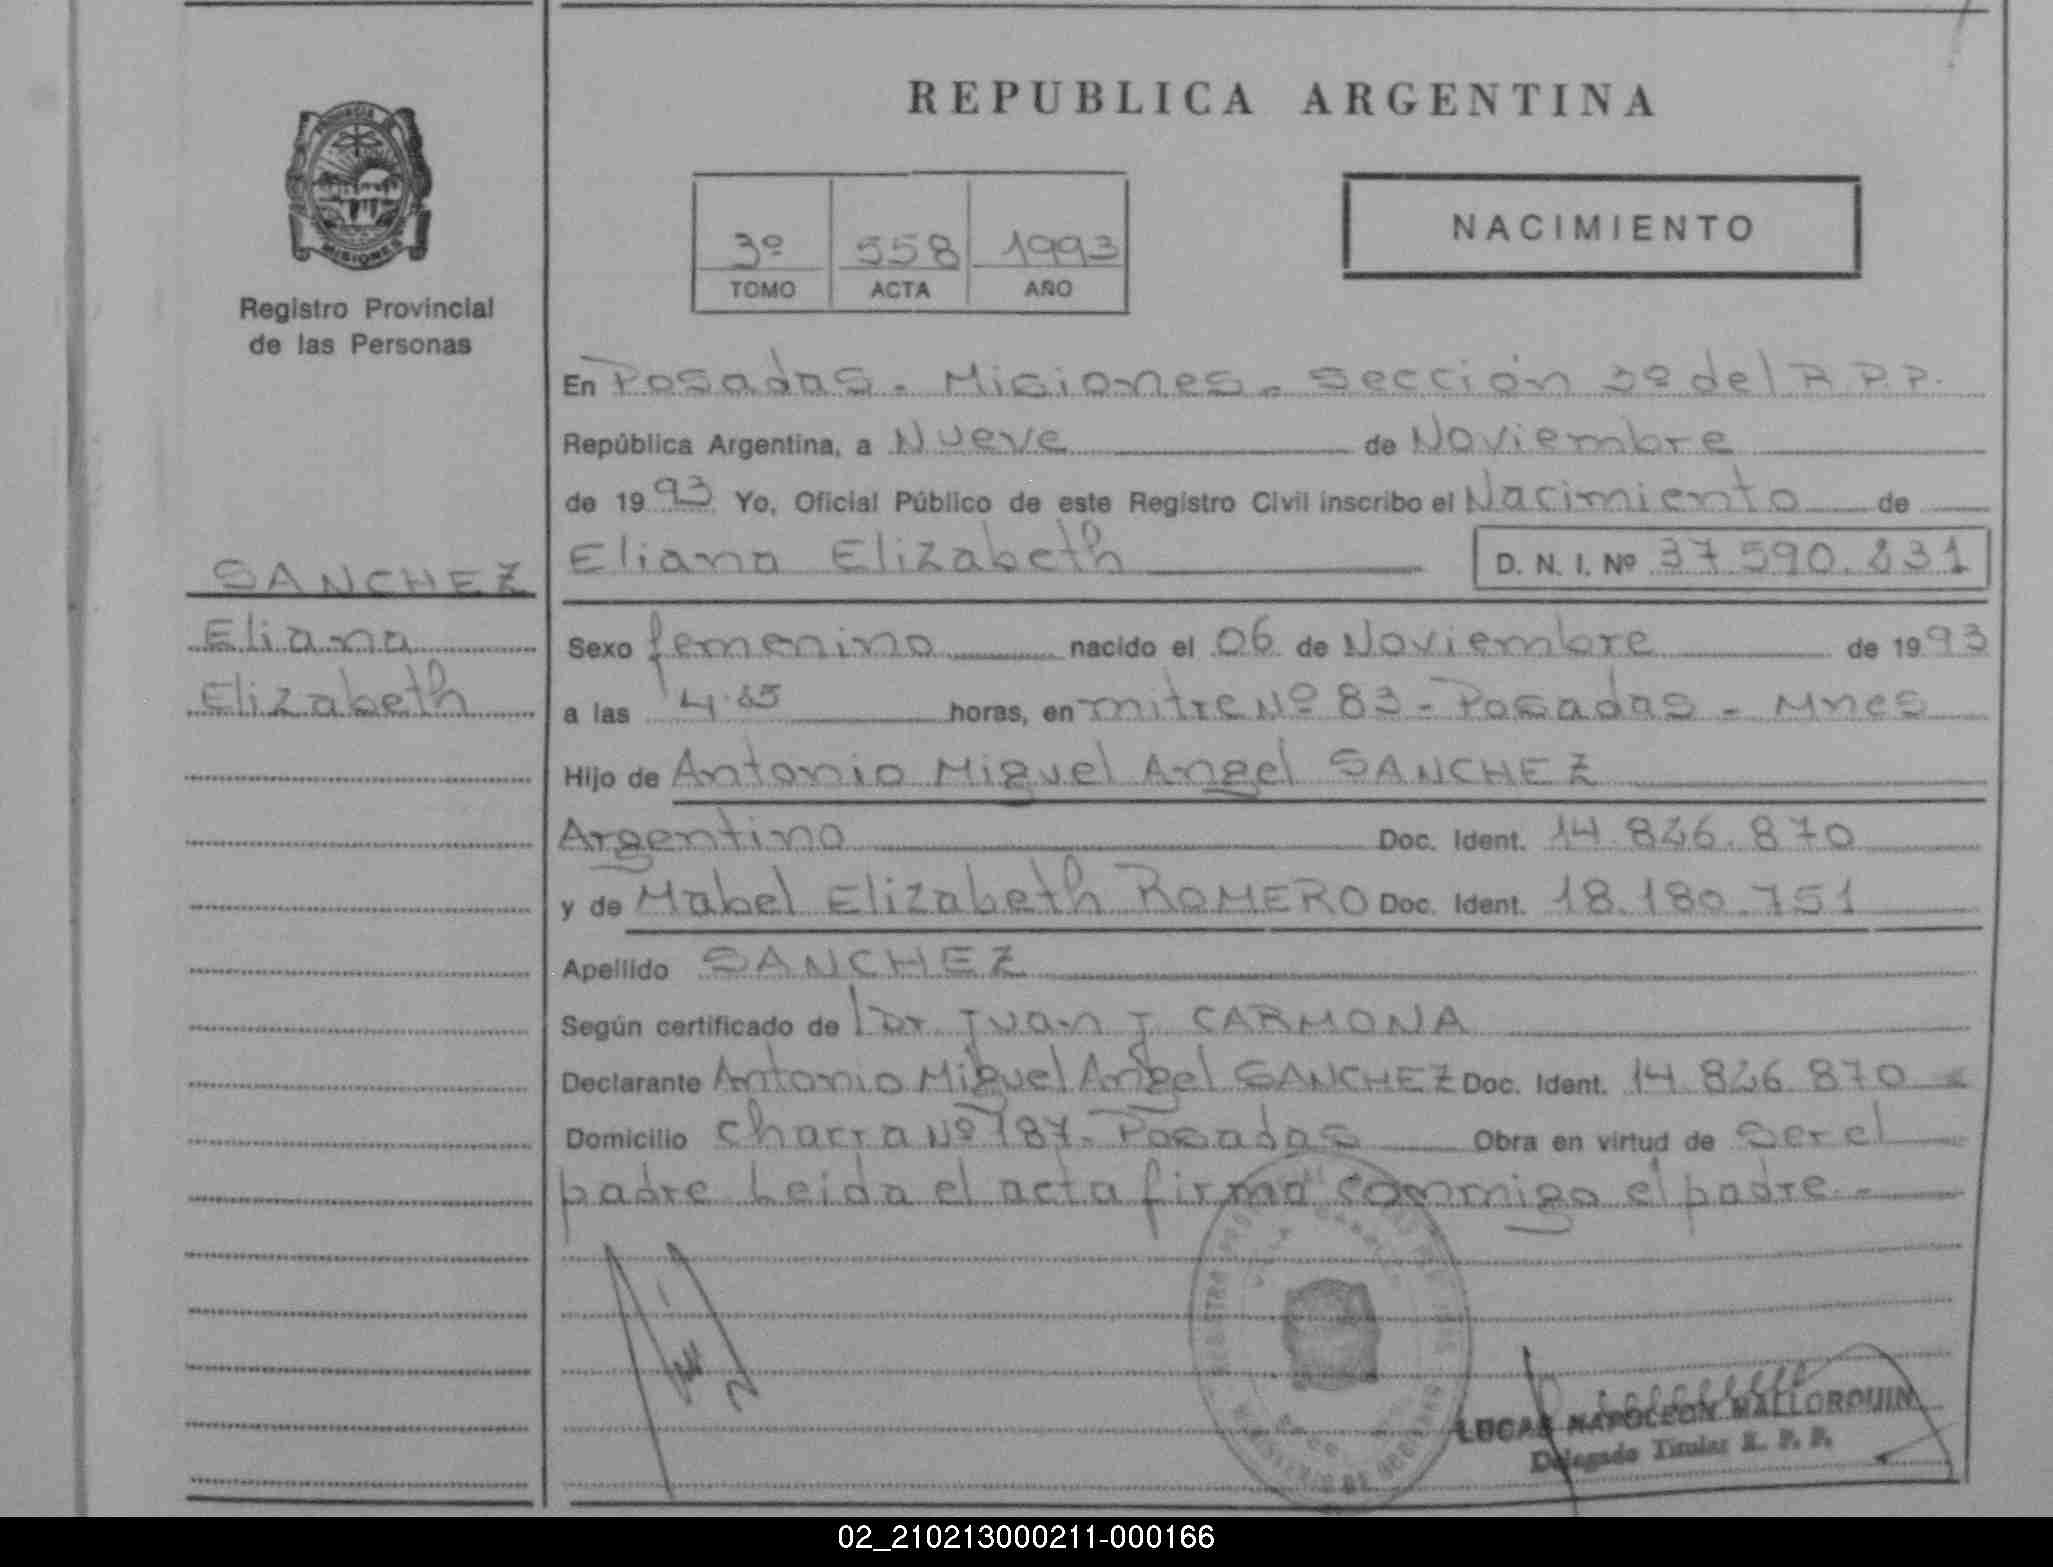 REPUBLICA ARGENTINA
PROVINCIA
MISIONES
Registro Provincial
de las Personas
3º 558 1993
TOMO ACTA AÑO
NACIMIENTO
En Posadas - Misiones - Sección 3º del R.P.P.
República Argentina, a Nueve de Noviembre
de 1993 Yo, Oficial Público de este Registro Civil inscribo el Nacimiento de
SANCHEZ
Eliana
Elizabeth
Eliana Elizabeth D. N. I. Nº 37.590.231
Sexo femenino nacido el 06 de Noviembre de 1993
a las horas, en mitre Nº 83 - Posadas - Mnes
Hijo de Antonio Miguel Angel SANCHEZ
Argentino Doc. Ident. 14.826.870
y de Mabel Elizabeth ROMERO Doc. Ident. 18.180.751
Apellido SANCHEZ
Según certificado de Dr. Juan J CARMONA
Declarante Antonio Miguel Angel SANCHEZ Doc. Ident. 14.826.870
Domicilio Chacra Nº 187 - Posadas Obra en virtud de Ser el
padre Leida el acta firma conmigo el padre -
LUCAS NAPOLEON MALLORQUIN
Delegado Titular R. P. P.
02_210213000211-000166